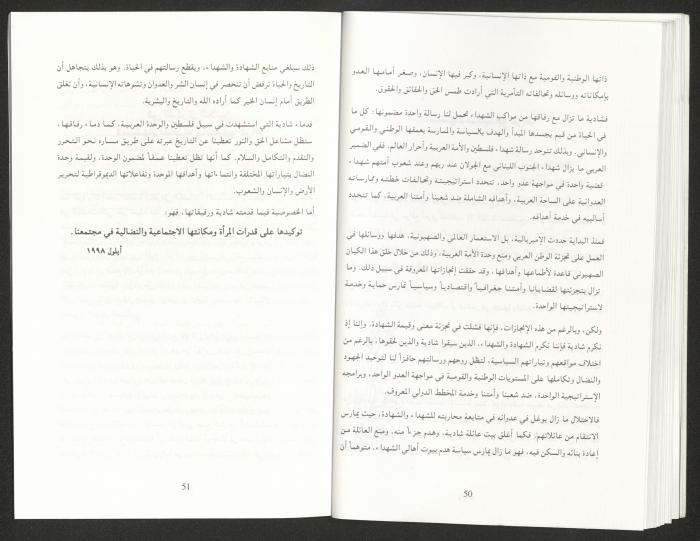 ذاتها الوطنية والقومية مع ذاتها الإنسانية، وكبر فيها الإنسان، وصغر أمامها العدو
بإمكاناته ووسائله وتحالفاته التآمرية التي أرادت طمس الحق والحقائق والحقوق.
فشادية ما تزال مع رفاقها من مواكب الشهداء تحمل لنا رسالة واحدة مضمونها: كل ما
في الحياة من قيم يجسدها المبدأ والهدف بالسياسة والممارسة بعمقها الوطني والقومي
والإنساني. وبذلك تتوحد رسالة شهداء فلسطين والأمة العربية وأحرار العالم. ففي الضمير
العربي ما يزال شهداء الجنوب اللبناني مع الجولان عند ربهم وعند شعوب أمتهم شهداء
قضية واحدة في مواجهة عدو واحد، تتحدد استراتيجيته وتحالفات خطته وممارساته
العدوانية على الساحة العربية، وأهدافه الشاملة ضد شعبنا وأمتنا العربية، كما تتحدد
أساليبه في خدمة أهدافه.
فمنذ البداية حددت الإمبريالية، بل الاستعمار العالمي والصهيونية، هدفها ووسائلها في
العمل على تجزئة الوطن العربي ومنع وحدة الأمة العربية، وذلك من خلال خلق هذا الكيان
الصهيوني قاعدة لأطماعها وأهدافها، وقد حققت إنجازاتها المعروفة في سبيل ذلك. وما
تزال بتجزئتها لقضايانا وأمتنا جغرافياً واقتصادياً وسياسياً تمارس حماية وخدمة
لاستراتيجيتها الواحدة.
ولكن، وبالرغم من هذه الإنجازات، فإنها فشلت في تجزئة معنى وقيمة الشهادة. وإننا إذ
نكرم شادية فإننا نكرم الشهادة والشهداء، الذين سبقوا شادية والذين لحقوها، بالرغم من
اختلاف مواقعهم وتياراتهم السياسية، لتظل روحهم ورسالتهم حافزاً لنا لتوحيد الجهود
والنضال وتكاملها على المستويات الوطنية والقومية في مواجهة العدو الواحد، وبرامجه
الإستراتيجية الواحدة، ضد شعبنا وأمتنا وخدمة المخطط الدولي المعروف.
فالاحتلال ما زال يوغل في عدوانه في متابعة محاربته للشهداء والشهادة، حيث يمارس
الانتقام من عائلاتهم. فكما أغلق بيت عائلة شادية، وهدم جزءاً منه، ومنع العائلة من
إعادة بنائه والسكن فيه، فهو ما زال يمارس سياسة هدم بيوت أهالي الشهداء، متوهماً أن
50
ذلك سيلغي منابع الشهادة والشهداء، ويقطع رسالتهم في الحياة. وهو بذلك يتجاهل أن
التاريخ والحياة ترفض أن تنحصر في إنسان الشر والعدوان وتشوهاته الإنسانية، وأن تغلق
الطريق أمام إنسان الخير كما أراده الله والتاريخ والبشرية.
فدماء شادية التي استشهدت في سبيل فلسطين والوحدة العربية، كما دماء رفاقها،
ستظل مشاعل الحق والنور تعطينا عن التاريخ عبرته على طريق مساره نحو التحرر
والتقدم والتكامل والسلام. كما أنها تظل تعطينا عمقاً لمضمون الوحدة، ولقيمة وحدة
النضال بتياراتها المختلفة وانتماءاتها وأهدافها الموحدة وتفاعلاتها الديموقراطية لتحرير
الأرض والإنسان والشعوب.
أما الخصوصية فيما قدمته شادية ورفيقاتها، فهو:
توكيدها على قدرات المرأة ومكانتها الاجتماعية والنضالية في مجتمعنا.
أيلول ١٩٩٨
51